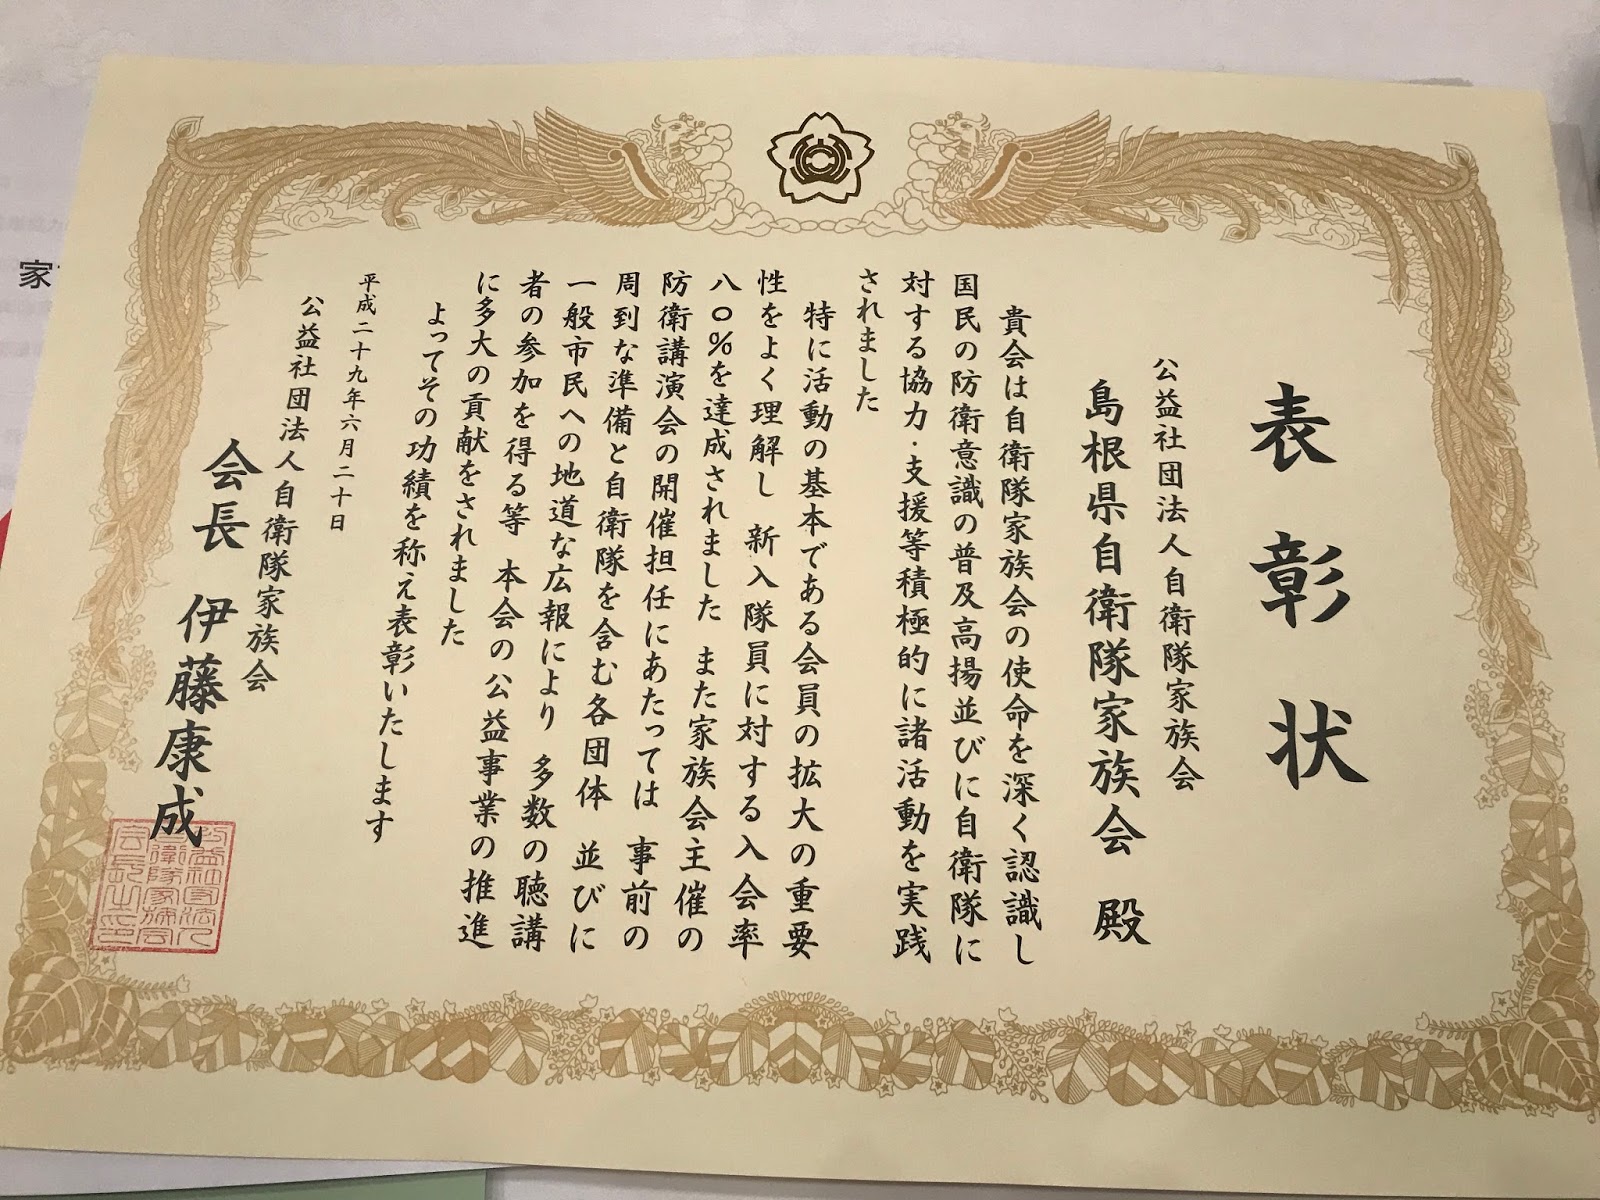 表彰状
公益社団法人自衛隊家族会
島根県自衛隊家族会 殿
貴会は自衛隊家族会の使命を深く認識し
国民の防衛意識の普及高揚並びに自衛隊に
対する協力・支援等積極的に諸活動を実践
されました
特に活動の基本である会員の拡大の重要
性をよく理解し 新入隊員に対する入会率
八〇%を達成されました また家族会主催の
防衛講演会の開催担任にあたっては 事前の
周到な準備と自衛隊を含む各団体 並びに
一般市民への地道な広報により 多数の聴講
者の参加を得る等 本会の公益事業の推進
に多大の貢献をされました
よってその功績を称え表彰いたします
平成二十九年六月二十日
公益社団法人自衛隊家族会
会長 伊藤康成
公益社団法人
自衛隊家族会
会長之印
家